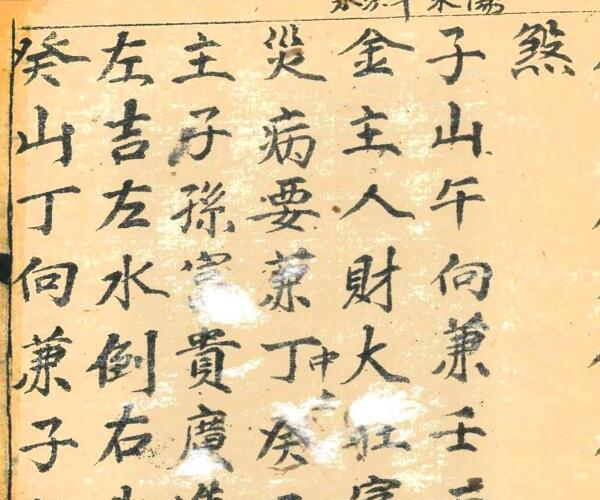 煞
子山午向蒹壬
金主人財大旺
災病要蒹丁癸
中
主子孫富貴廣
左吉左水倒右
癸山丁向蒹子